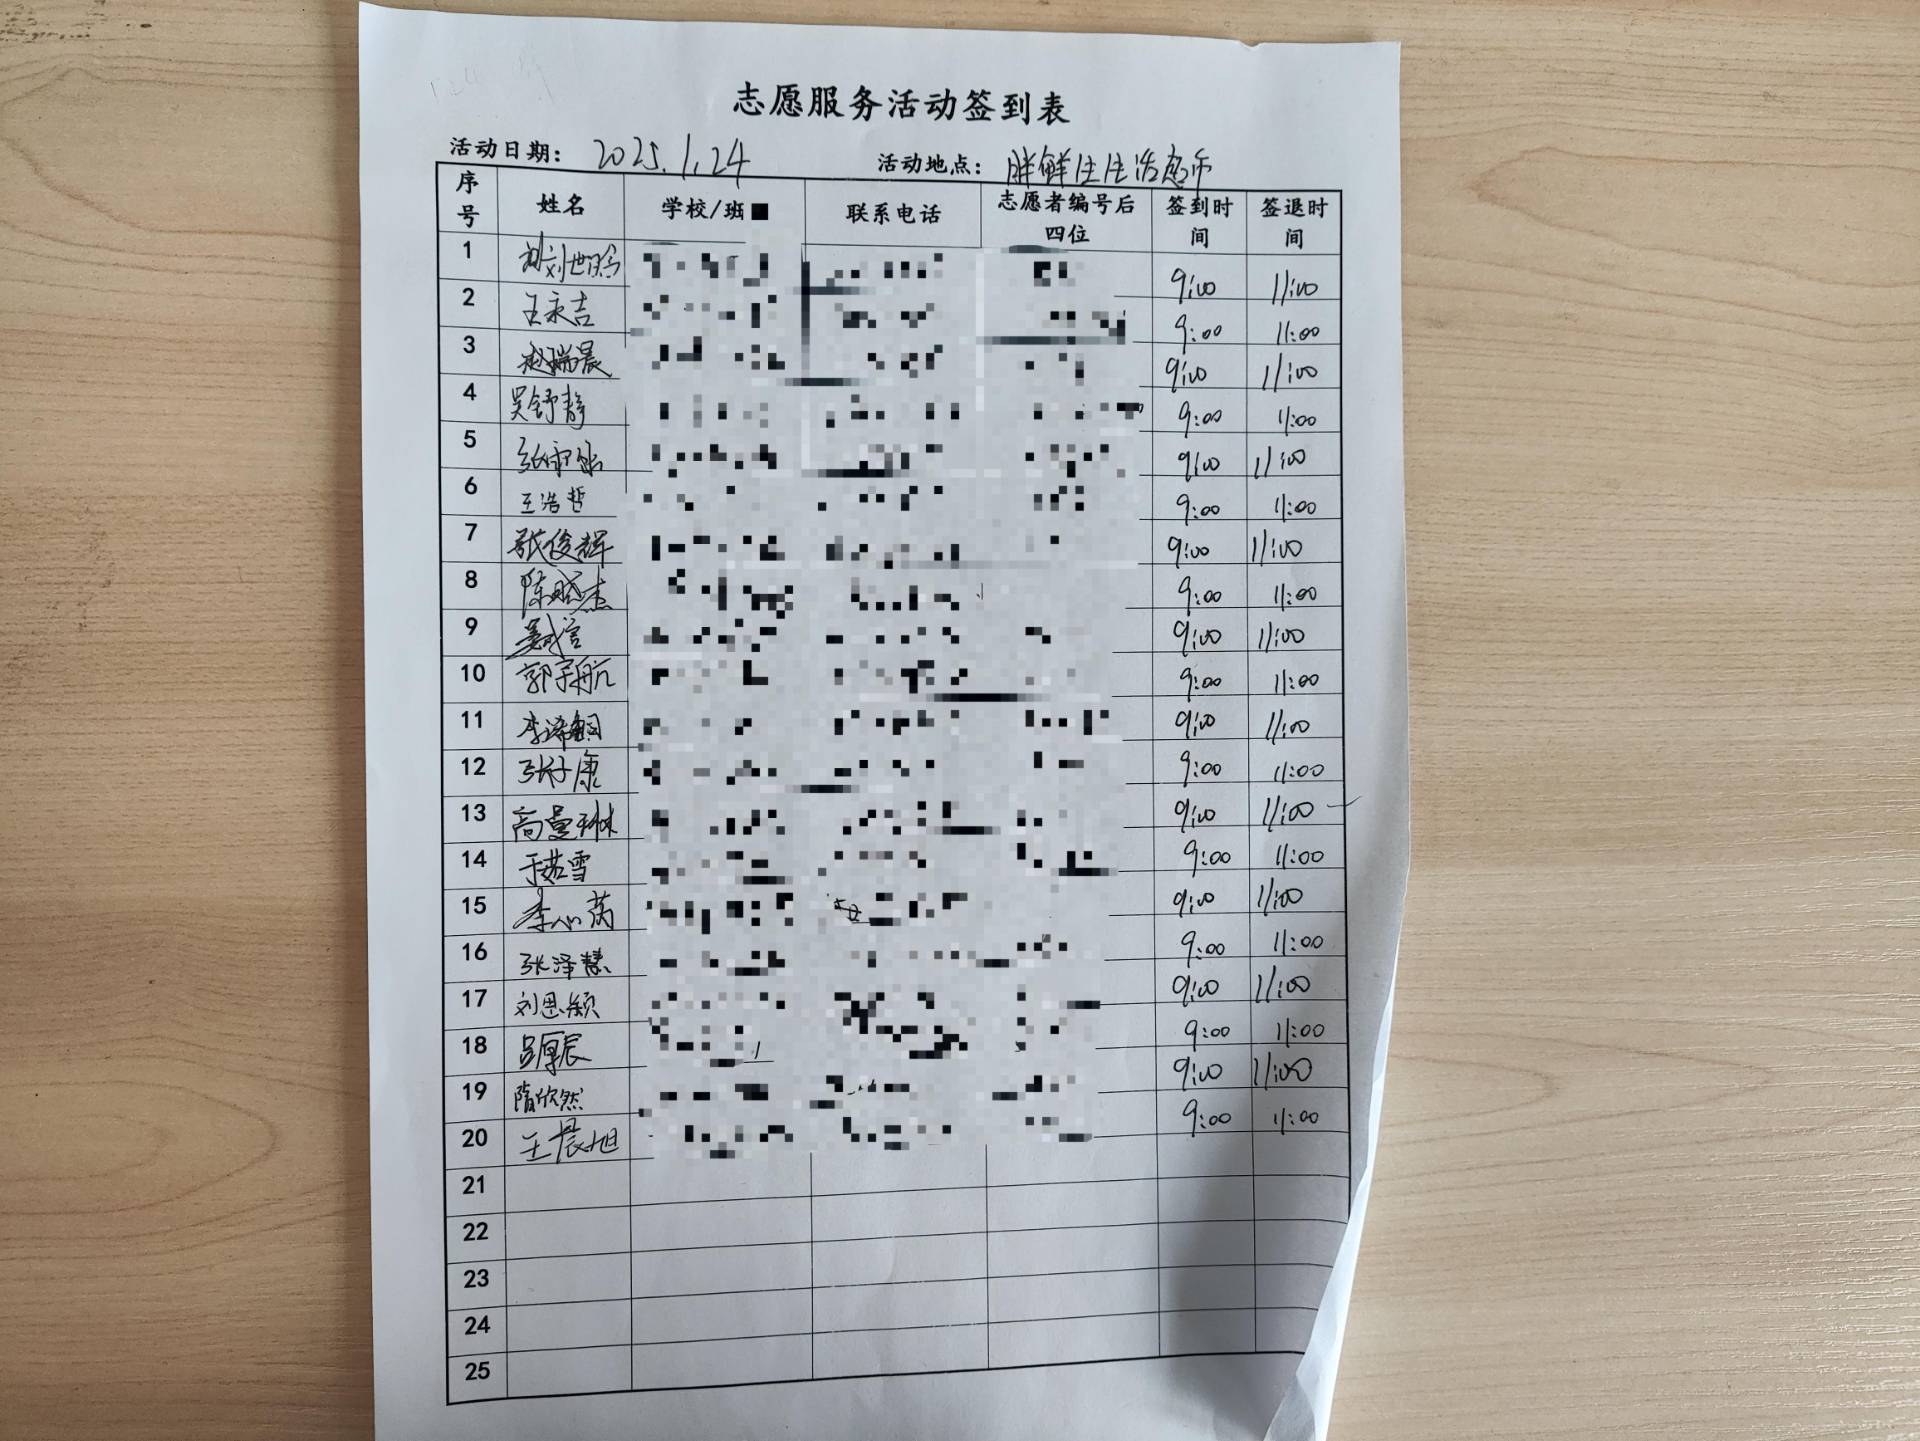 志愿服务活动签到表
活动日期: 2025.1.24 活动地点: 胖鲜生生活超市
序号 姓名 学校/班 联系电话 志愿者编号后四位 签到时间 签退时间
1 9:00 11:00
2 王永吉 9:00 11:00
3 赵瑞晨 9:00 11:00
4 吴舒静 9:00 11:00
5 9:00 11:00
6 王浩哲 9:00 11:00
7 张俊辉 9:00 11:00
8 陈晓杰 9:00 11:00
9 9:00 11:00
10 郭宇航 9:00 11:00
11 9:00 11:00
12 张子康 9:00 11:00
13 高曼琳 9:00 11:00
14 于茹雪 9:00 11:00
15 李心芮 9:00 11:00
16 张泽慧 9:00 11:00
17 刘思颖 9:00 11:00
18 吕厚辰 9:00 11:00
19 隋欣然 9:00 11:00
20 王晨旭 9:00 11:00
21
22
23
24
25